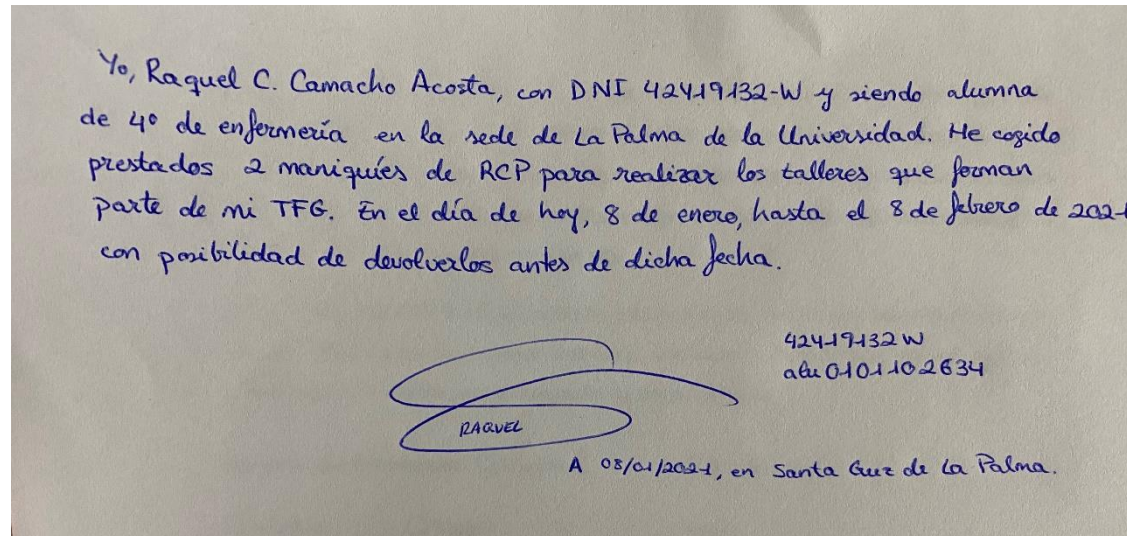 Yo, Raquel C. Camacho Acosta, con DNI 42419132-W y siendo alumna
de 4º de enfermería en la sede de La Palma de la Universidad. He cogido
prestados 2 maniquíes de RCP para realizar los talleres que forman
parte de mi TFG. En el día de hoy, 8 de enero, hasta el 8 de febrero de 2021
con posibilidad de devolverlos antes de dicha fecha.
42419132 W
alu 0101102634
RAQUEL
A 08/01/2021, en Santa Cruz de La Palma.